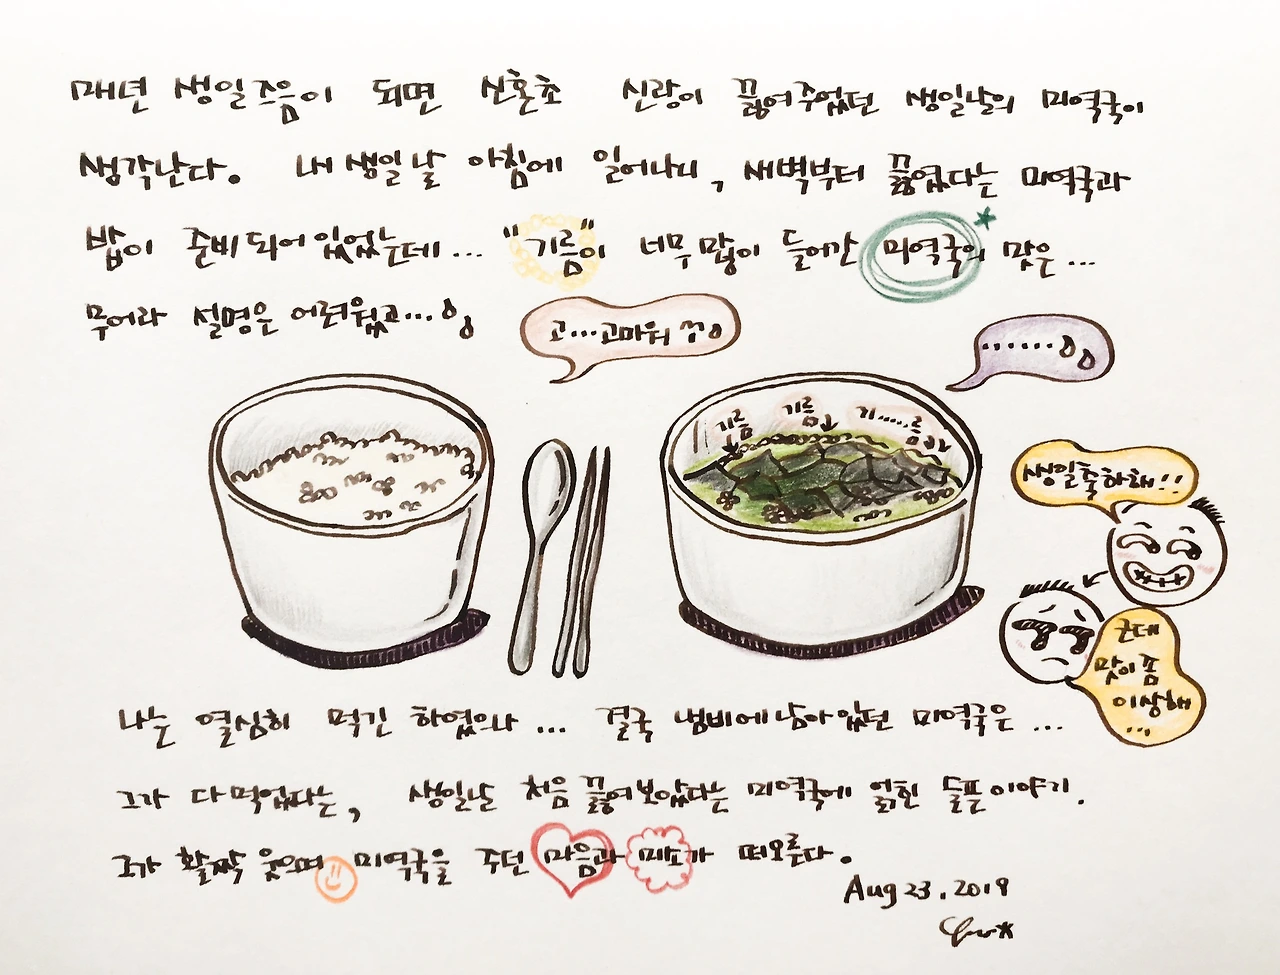 매년 생일즈음이 되면 신혼초 신랑이 끓여주었던 생일날의 미역국이
생각난다. 내 생일날 아침에 일어나니, 새벽부터 끓였다는 미역국과
밥이 준비되어 있었는데... "기름"이 너무 많이 들어간 미역국의 맛은...
무어라 설명은 어려웠고...
고...고마워
......
기름
기름
기......름
생일축하해!!
근데
맛이 좀
이상해
...
나는 열심히 먹긴 하였으나 ... 결국 냄비에 남아있던 미역국은 ...
그가 다 먹었다는, 생일날 처음 끓여보았다는 미역국에 얽힌 슬픈이야기.
그가 활짝 웃으며 미역국을 주던 마음과 미소가 떠오른다.
Aug 23, 2019